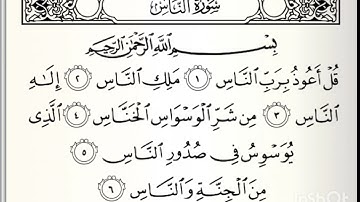 سُورَةُ النَّاسِ
بِسْمِ اللَّهِ الرَّحْمَٰنِ الرَّحِيمِ
قُلْ أَعُوذُ بِرَبِّ النَّاسِ ١ مَلِكِ النَّاسِ ٢ إِلَٰهِ
النَّاسِ ٣ مِن شَرِّ الْوَسْوَاسِ الْخَنَّاسِ ٤ الَّذِي
يُوَسْوِسُ فِي صُدُورِ النَّاسِ ٥
مِنَ الْجِنَّةِ وَالنَّاسِ ٦
InShot